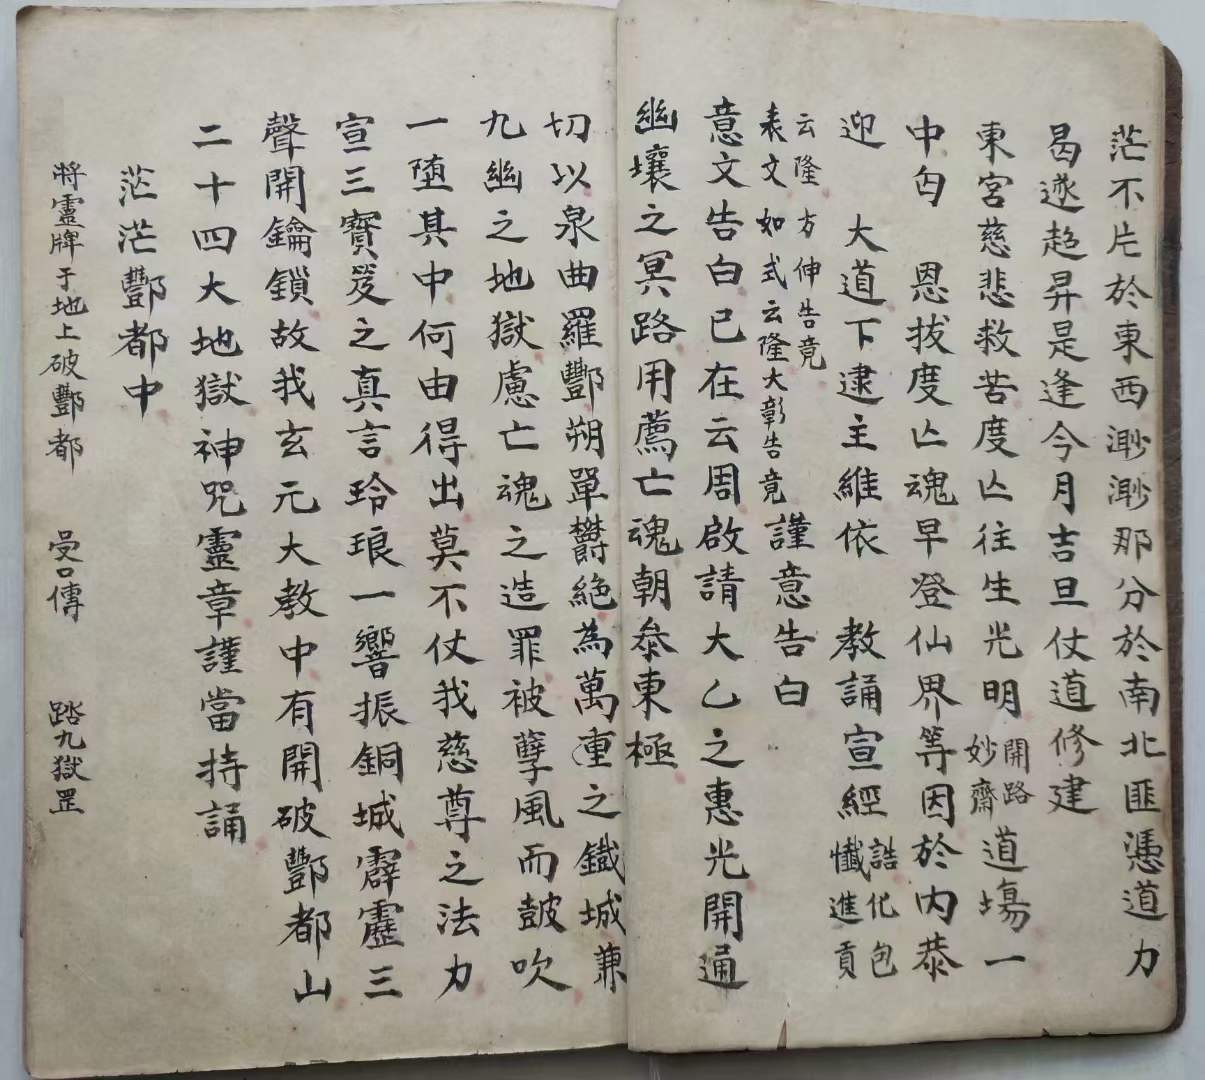 茫不片於東西渺渺那分於南北匪憑道力
曷遂超昇是逢今月吉旦仗道修建
東宮慈悲救苦度亾往生光明開路妙齋道塲一
中匄 恩拔度亾魂早登仙界等因於內恭
迎 大道下逮主維依 教誦宣經誥化包懺進貢
云隆方伸告竟
表文如式云隆大彰告竟謹意告白
意文告白已在云周啟請大乙之惠光開通
幽壤之冥路用薦亡魂朝叅東極
切以泉曲羅酆朔單欝絕為萬重之鐵城兼
九幽之地獄慮亡魂之造罪被孽風而皷吹
一堕其中何由得出莫不仗我慈尊之法力
宣三寶笈之真言玲琅一響振銅城霹靂三
聲開鑰鎖故我玄元大教中有開破酆都山
二十四大地獄神咒靈章謹當持誦
茫茫酆都中
將靈牌于地上破酆都 口傳 踏九獄罡